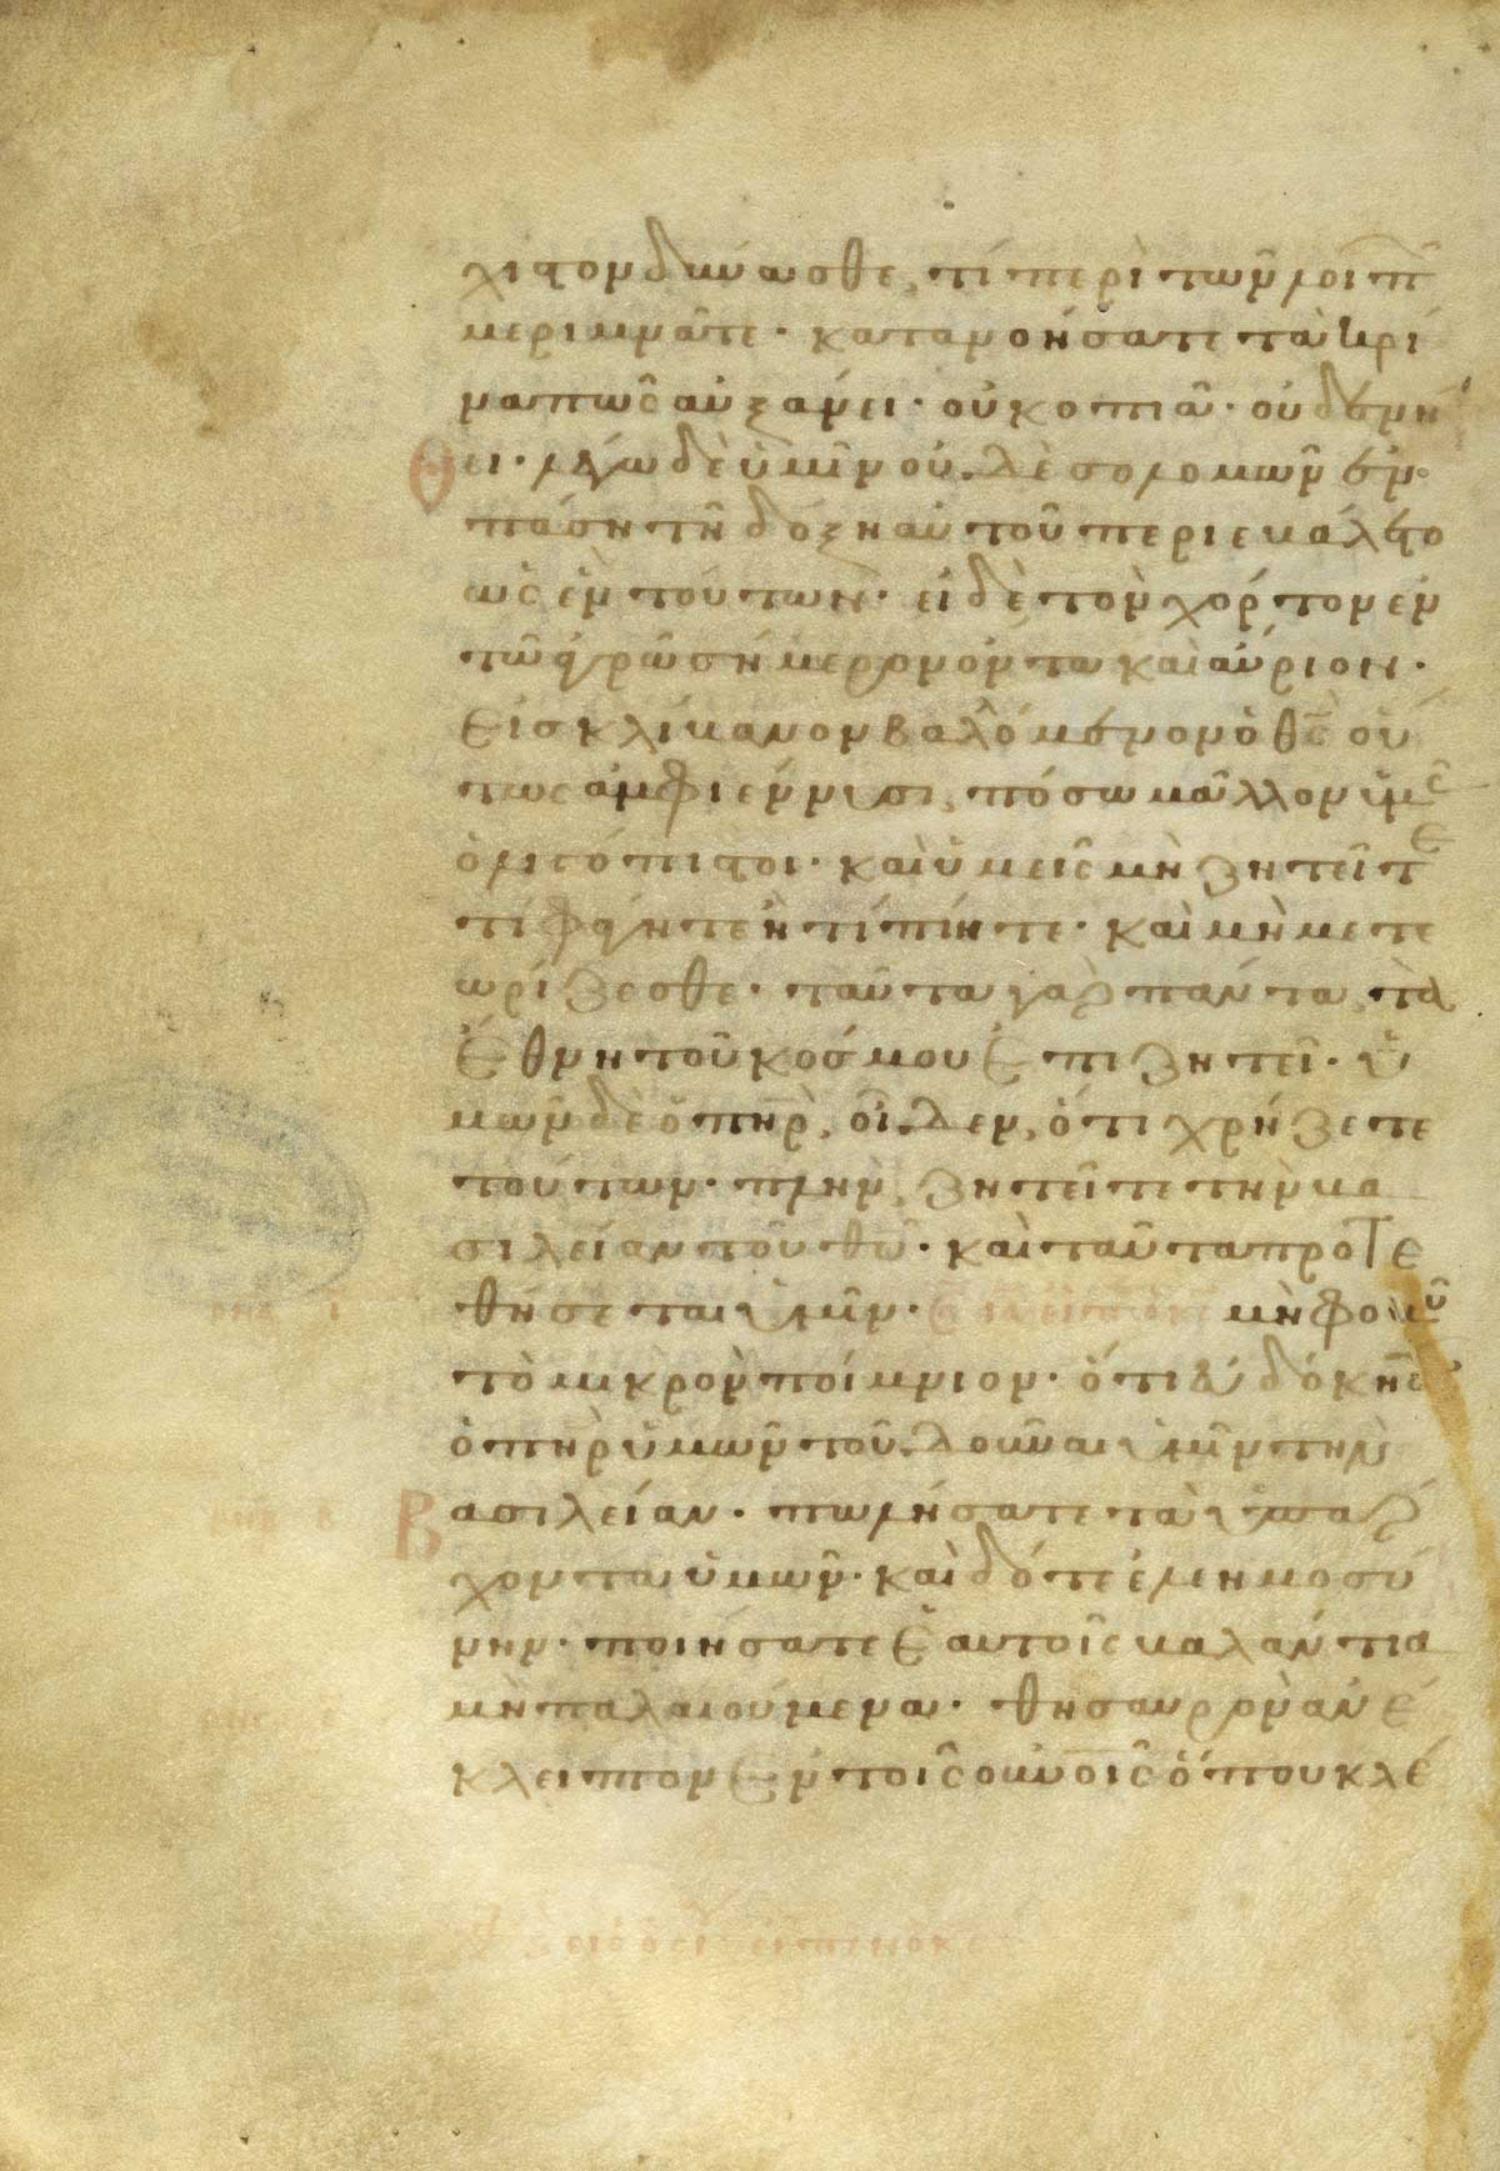 χιστον δύνασθε, τί περὶ τῶν λοιπῶ
μεριμνᾶτε · κατανοήσατε τὰ κρί
να πῶς αὐξάνει · οὐ κοπιᾶ · οὐδὲ νή
θει · λέγω δὲ ὑμῖν οὐδὲ σολομὼν ἐν
πάση τῆ δόξη αὐτοῦ περιεβάλετο
ὡς ἓν τούτων · εἰ δὲ τὸν χόρτον ἐν
τῶ ἀγρῶ σήμερον ὄντα καὶ αὔριον ·
εἰς κλίβανον βαλλόμενον ὁ θς οὕ
τως ἀμφιέννυσι, πόσω μᾶλλον ὑμᾶς
ὀλιγόπιστοι · καὶ ὑμεῖς μὴ ζητεῖτε
τί φάγητε ἢ τί πίητε · καὶ μὴ μετε
ωρίζεσθε · ταῦτα γὰρ πάντα τὰ
ἔθνη τοῦ κόσμου ἐπιζητεῖ · ὑ
μῶν δὲ ὁ πηρ, οἶδεν, ὅτι χρήζετε
τούτων · πλὴν, ζητεῖτε τὴν βα
σιλείαν τοῦ θυ · καὶ ταῦτα προστε
θήσεται ὑμῖν · εἶπεν ὁ κς μὴ φοβοῦ
τὸ μικρὸν ποίμνιον · ὅτι εὐδόκησεν
ὁ πηρ ὑμῶν τοῦ δοῦναι ὑμῖν τὴν
βασιλείαν · πωλήσατε τὰ ὑπάρ
χοντα ὑμῶν · καὶ δότε ἐλεημοσύ
νην · ποιήσατε ἑαυτοῖς βαλάντια
μὴ παλαιούμενα · θησαυρὸν ἀνέ
κλειπτον ἐν τοῖς οὐνοῖς ὅπου κλέ
εἶπεν ὁ κς